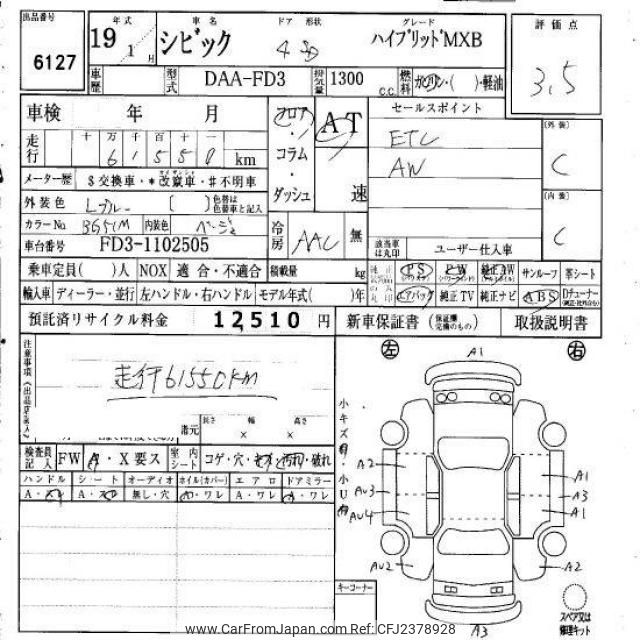 出品番号 年式 車名 ドア 形状 グレード 評価点
6127 19 1月 シビック 4 SD ハイブリッドMXB 3.5
車歴 型式 DAA-FD3 排気量 1300 C.C. 燃料 ガソリン・( )・軽油
車検 年 月 フロア・コラム・ダッシュ AT 速 セールスポイント
走行 十 万 千 百 十 一 ETC (外装) C
6 1 5 5 0 km AW
メーター歴 $交換車・*改竄車・#不明車 (内装) C
外装色 Lブルー ( ) 色替は色替車と記入
カラーNo B651M 内装色 ベージュ 冷房 AAC 無
車台番号 FD3-1102505 該当車は丸印 ユーザー仕入車
乗車定員( )人 NOX 適合・不適合 積載量 kg PS PW 純正AW サンルーフ 革シート
輸入車 ディーラー・並行 左ハンドル・右ハンドル モデル年式( )年 エアバック 純正TV 純正ナビ ABS Dチューナー
預託済リサイクル料金 12,510円 新車保証書 (保証書完備のもの) 取扱説明書
注意事項(出品店記入) 左 A1 右
走行61550KM
諸元 長さ × 幅 × 高さ
検査員記入 FW A・X要ス 室内シート コゲ・穴・汚れ・破れ
ハンドル シート オーディオ ホイル(カバー) エアロ ドアミラー
A・スレ A・スレ 無し・穴 A・ワレ A・ワレ A・ワレ
小キズ有・小U有
A2 A1
AU3 A3
AU4 A1
AU2 A2
キーコーナー
A3 スペア又は修理キット
www.CarFromJapan.com Ref:CFJ2378928